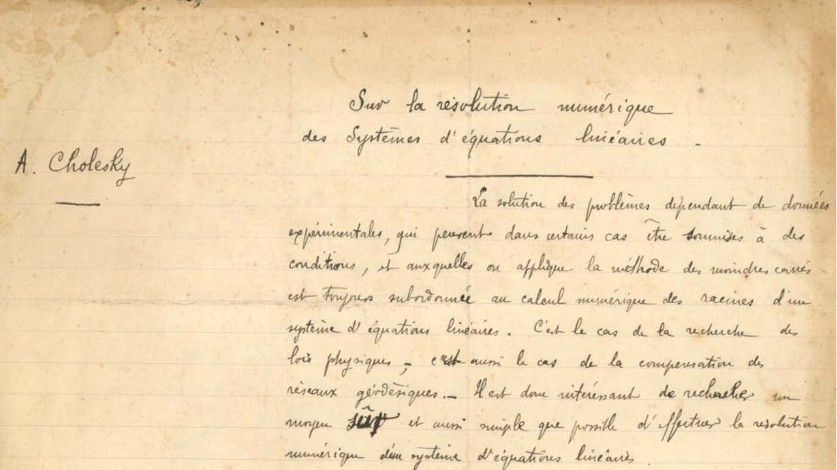 Sur la résolution numérique
des Systèmes d'équations linéaires.
A. Cholesky
La solution des problèmes dépendant de données
expérimentales, qui peuvent dans certains cas être soumises à des
conditions, et auxquelles on applique la méthode des moindres carrés
est toujours subordonnée au calcul numérique des racines d'un
système d'équations linéaires. C'est le cas de la recherche des
lois physiques, c'est aussi le cas de la compensation des
réseaux géodésiques. — Il est donc intéressant de rechercher un
moyen sûr et aussi simple que possible d'effectuer la résolution
numérique d'un système d'équations linéaires.